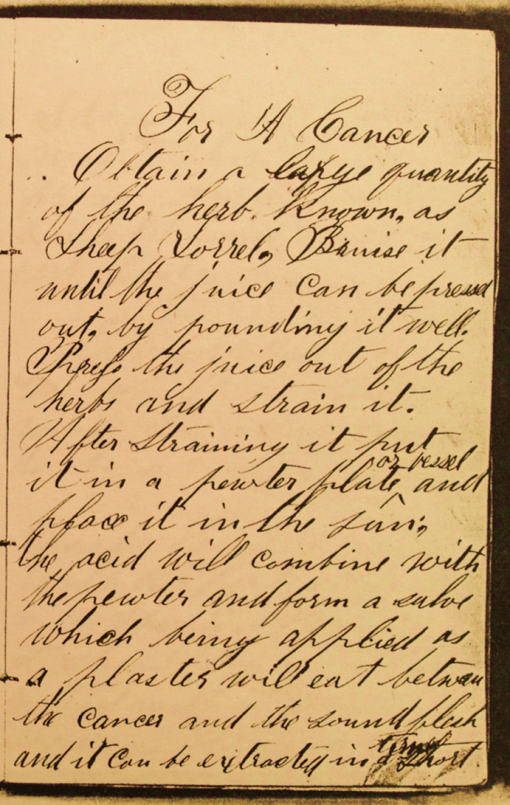 For A Cancer
. Obtain a large quantity
of the herb. Known, as
Sheep Sorrel, Bruise it
until the juice can be pressed
out, by pounding it well.
Press the juice out of the
herbs and strain it.
After straining it put
or vessel
it in a pewter plate, and
place it in the sun;
the acid will combine with
the pewter and form a salve
which being applied as
a plaster will eat between
the cancer and the sound flesh
time
and it can be extracted in a short